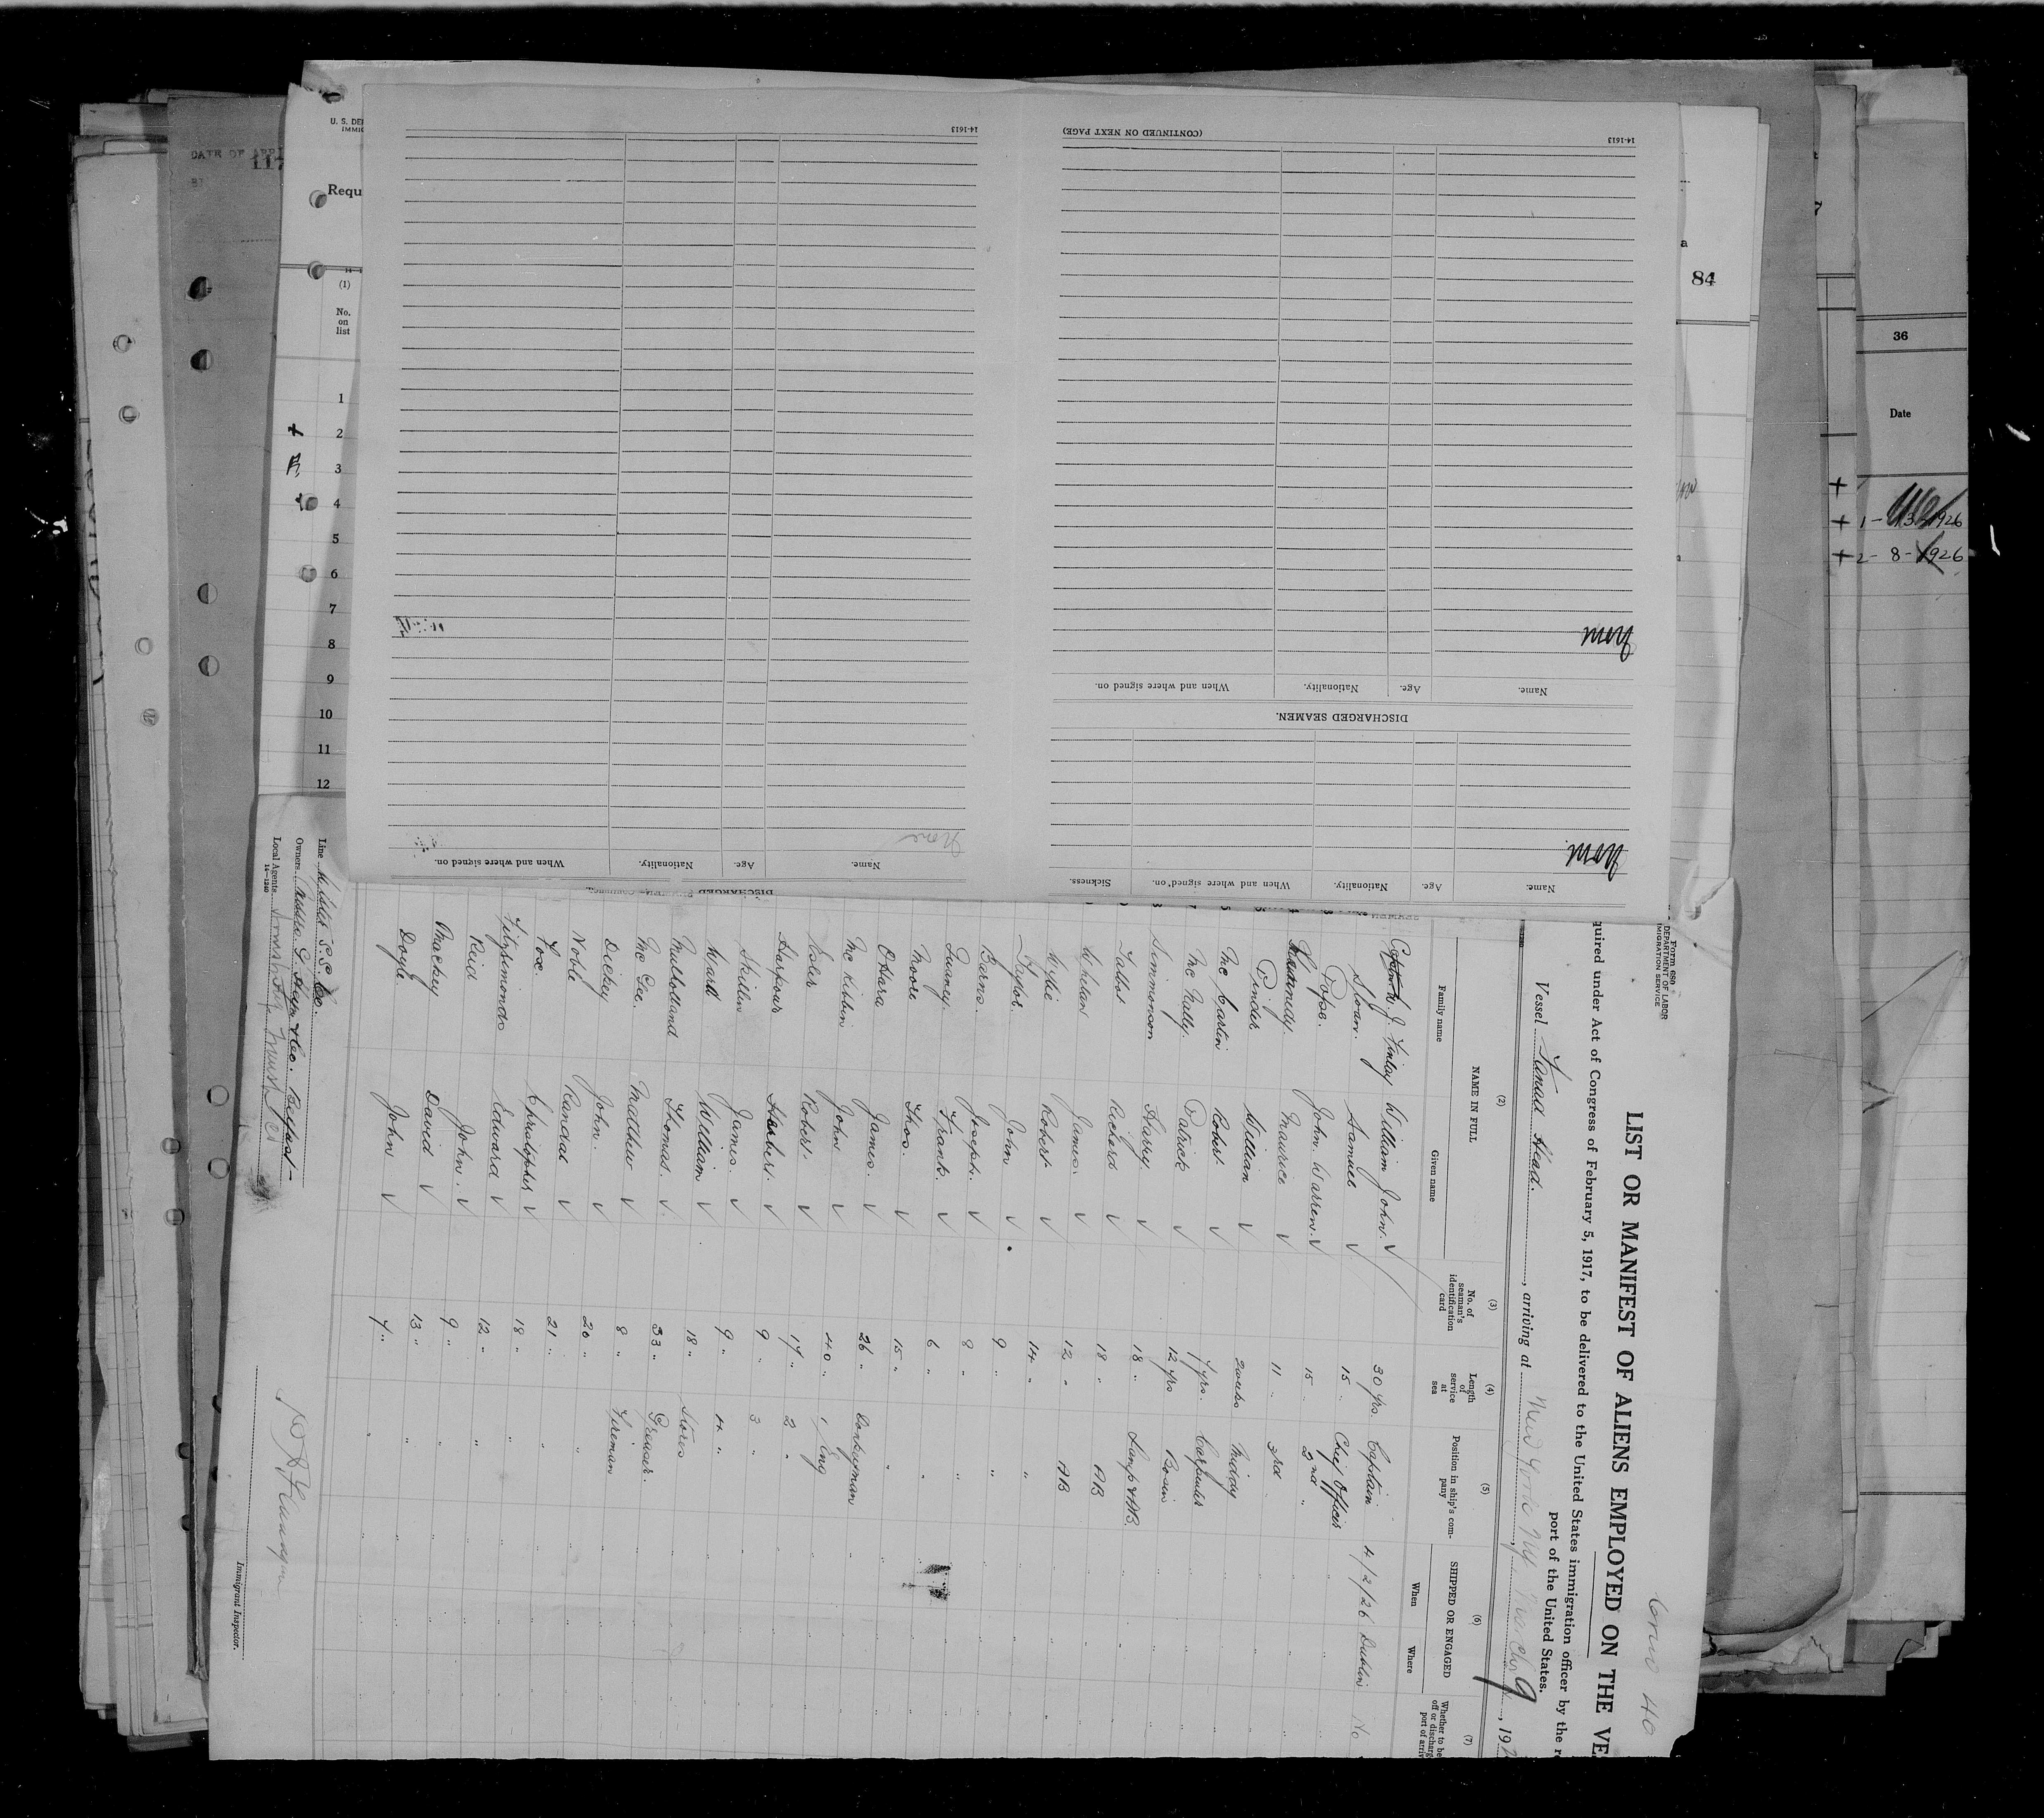 Form 680
DEPARTMENT OF LABOR
IMMIGRATION SERVICE
LIST OR MANIFEST OF ALIENS EMPLOYED ON THE VE
quired under Act of Congress of February 5, 1917, to be delivered to the United States immigration officer by the re
port of the United States.
Vessel Fanad Head. , arriving at New York N.Y. March 9 , 192
(2) (3) (4) (5) (6) (7)
NAME IN FULL No. of seaman's identification card Length of service at sea Position in ship's company SHIPPED OR ENGAGED
Family name Given name When Where
J. Finlay William John. √ 30 yrs. Captain 4/2/26 Dublin No
Sloan. Samuel √ 15 " Chief Officer " "
Pope. John Warren. √ 15 " 2nd " " "
Kennedy. Maurice √ 11 " 3rd " " "
Pinder William √ 2 wks Middy " "
Mc Cartin Robert. √ 7 yrs. Carpenter " "
Mc Nally. Patrick √ 12 yrs Bosun " "
Simmonson Harry √ 18 " Lamp & AB. " "
Talbot Richard √ 18 " AB " "
Whelan James. √ 12 " AB " "
Wylie Robert √ 14 " " " "
Taylor. John √ 9 " " "
Barns. Joseph. √ 8 " " "
Quiney. Frank. √ 6 " "
Moore Thos. √ 15 " " "
O'Hara James. √ 26 " Donkeyman " "
Mc Kibbin John √ 40 " 1 Eng " "
Coles Robert. √ 17 " 2 " " "
Harpour Herbert. √ 9 " 3 " " "
Skillin James. √ 9 " 4 " " "
Ward William √ 18 " Stores " "
Mulholland Thomas. √ 33 " Greaser. " "
Mc Gee. Matthew √ 8 " Fireman " "
Dickey John. √ 20 " " " "
Noble Randal √ 21 " " " "
Fox Christopher √ 18 " " " "
Fitzsimonds Edward √ 12 " " " "
Reid John. √ 9 " " " "
Mackey David √ 13 " " " "
Doyle John √ 7 " " " "
Line Ulster S.S. Co.
Owners Messrs G. Heyn & Co. Belfast
Local Agents
14—1240
Immigrant Inspector.
14-1613
(CONTINUED ON NEXT PAGE)
14-1613
Name. Age. Nationality. When and where signed on. Sickness.
None
DISCHARGED SEAMEN.
Name. Age. Nationality. When and where signed on.
None
DISCHARGED
Name. Age. Nationality. When and where signed on.
None
U. S. DE
IMMIG
Requ
(1)
No.
on
list
1
2
3
4
5
6
7
8
9
10
11
12
DATE OF
117
84
36
Date
+ 1 - 13 1926
+ 2 - 8 - 1926